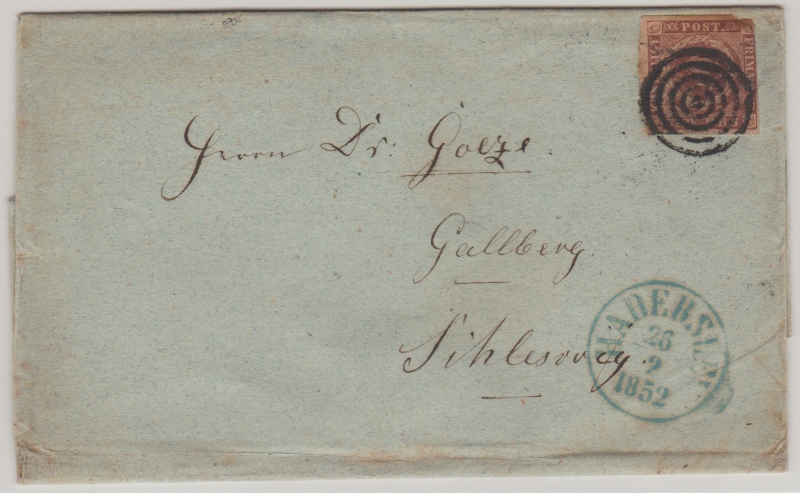 POST
FRIM
Herrn Dr. Goeze
Gallberg
Schleswig.
HADERSLEV
26
2
1852